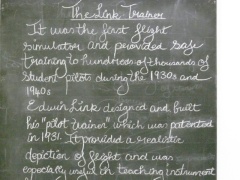 The Link Trainer
It was the first flight
simulator and provided safe
training to hundreds of thousands of
student pilots during the 1930s and
1940s.
Edwin Link designed and built
his "pilot trainer" which was patented
in 1931. It provided a realistic
depiction of flight and was
especially useful in teaching instrument